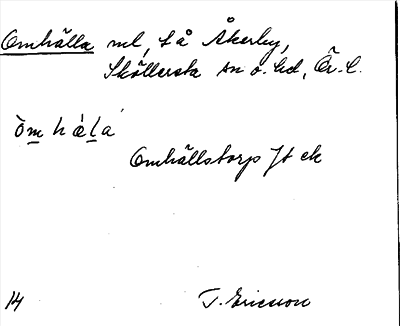 Omhälla ml, t å Åkerby,
Sköllersta sn o. hd, Ör. l.
òm hǽla
Omhällstorp Jt ek
14 T. Ericsson